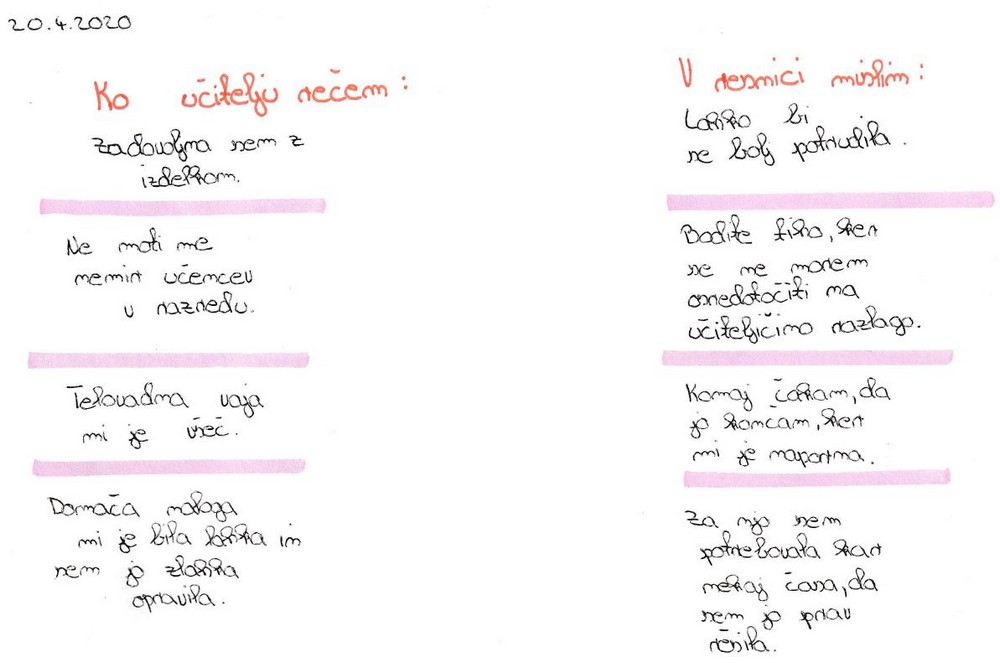 20.4.2020
Ko učitelju rečem:
Zadovoljna sem z
izdelkom.
Ne moti me
nemir učencev
v razredu.
Telovadna vaja
mi je všeč.
Domača naloga
mi je bila lahka in
sem jo zlahka
opravila.
V resnici mislim:
Lahko bi
se bolj potrudila.
Bodite tiho, ker
se ne morem
osredotočiti na
učiteljičino razlago.
Komaj čakam, da
jo končam, ker
mi je naporna.
Za njo sem
potrebovala kar
nekaj časa, da
sem jo prav
rešila.